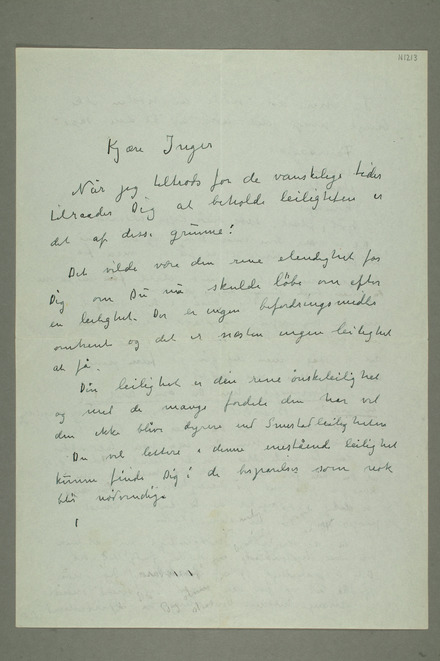 N1213
Kjære Inger
Når jeg tiltrods for de vanskelige tider
tilraader Dig at beholde leiligheten er
det af disse grunne:
Det vilde være den rene elendighet for
Dig om Du nu skulde löbe om efter
en leilighet. Der er ingen befordringsmidle
omtrent og det er næsten ingen leilighet
at få.
Din leilighet er den rene önskeleilighet
og med de mange fordele den har vil
den ikke blive dyrere end Smestadleiligheten
Du vil lettere i denne enestående leilighet
kunne finde Dig i de besparelser som nok
blir nödvendige